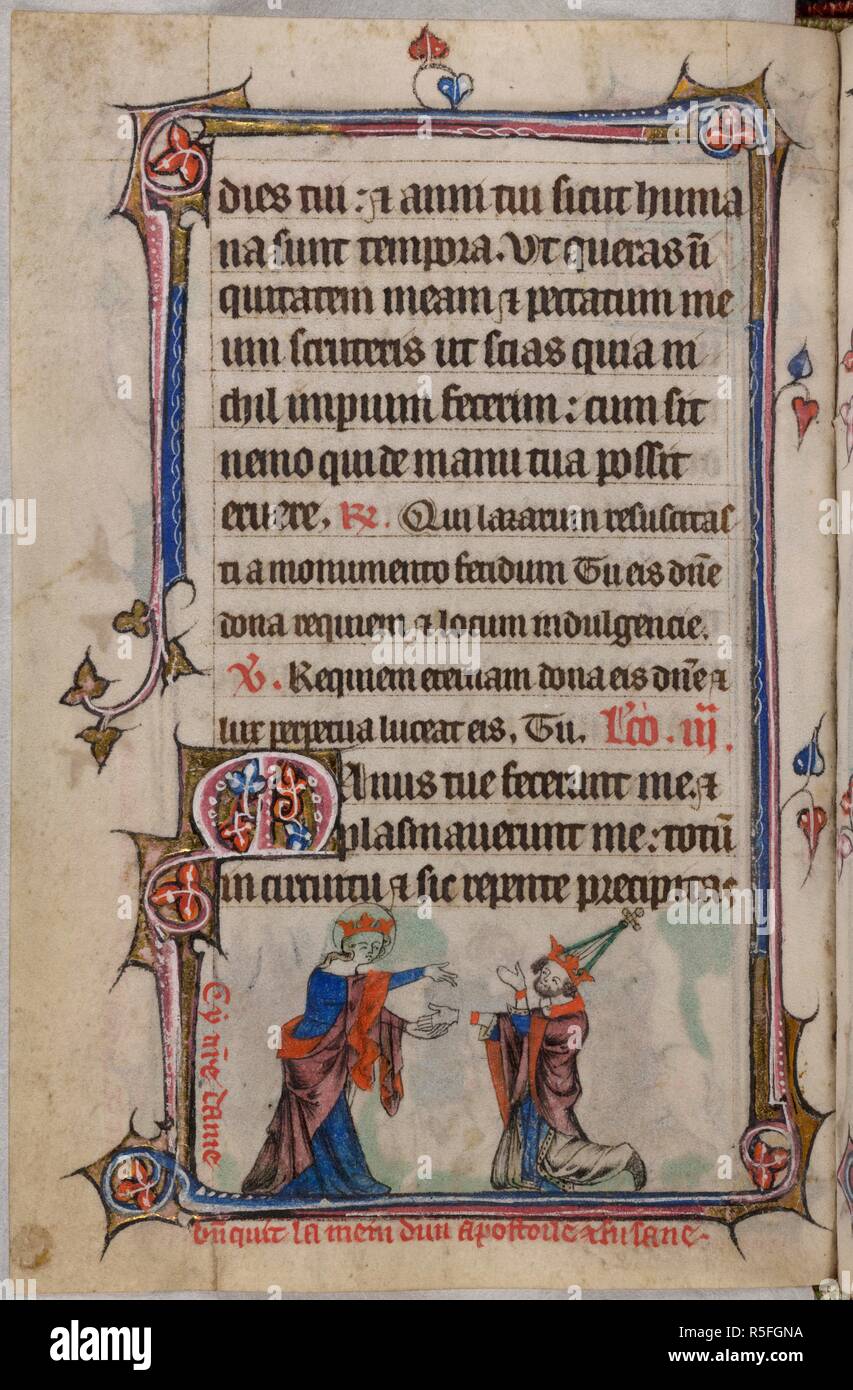 dies tui : & anni tui sicut huma
na sunt tempora. Vt queras iı̄
quitatem meam & peccatum me
um scruteris ut scias quia ni
chil impium fecerim : cum sit
nemo qui de manu tua possit
eruere. R. Qui lazarum resuscitas
ti a monumento fetidum Tu eis dn̄e
dona requiem & locum indulgencie.
V. Requiem eternam dona eis dn̄e &
lux perpetua luceat eis. Tu. Lc̄o. iij.
Manus tue fecerunt me. &
plasmauerunt me : totū
in circuitu & sic repente precipitas
Cy nr̄e dame
la mein dun apostoile
alamy
Image ID: R5FGNA
www.alamy.com